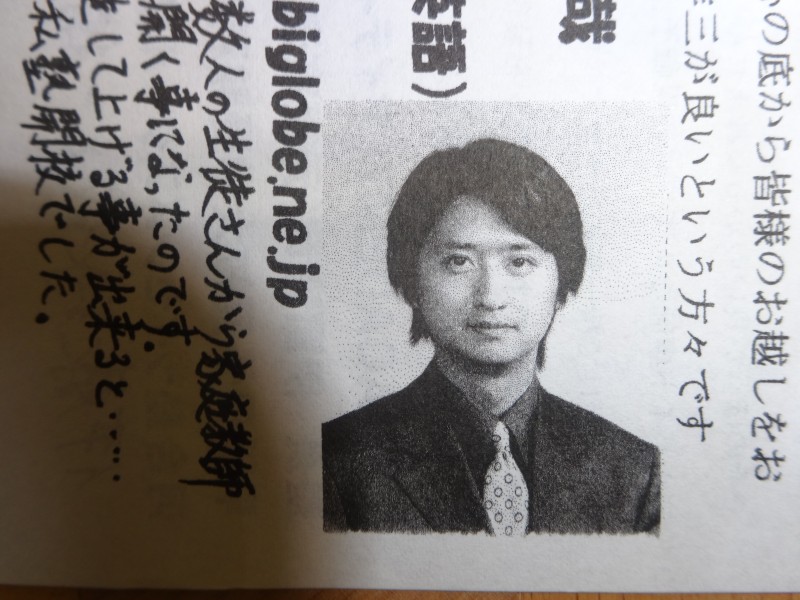 の底から皆様のお越しをお
三が良いという方々です
哉
英語)
biglobe.ne.jp
数人の生徒さんから家庭教師
開く事になったのです。
して上げる事が出来ると・・・・・
私塾開校でした。